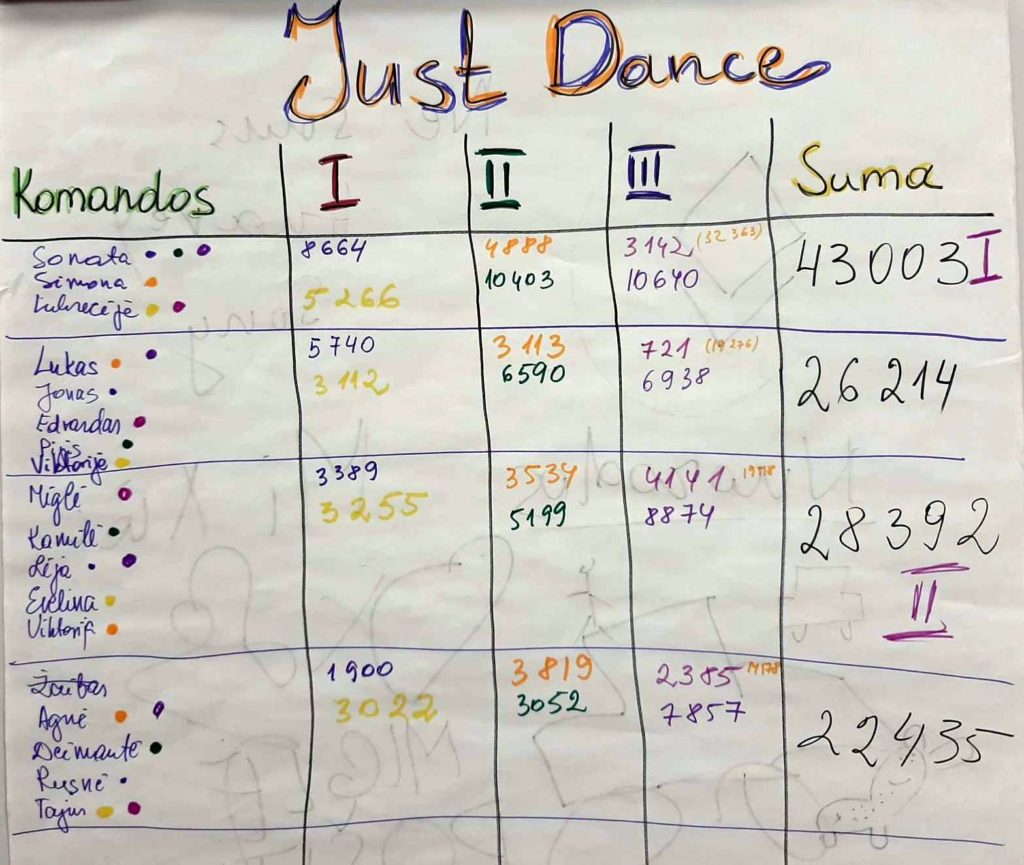 Just Dance
Komandos I II III Suma
Sonata 8664 4888 3142 (32 363) 43003 I
Simona 10403 10640
5266
Lukas 5740 3113 721 (19 276) 26 214
Jonas 3112 6590 6938
Edvardas
Viktorija
Miglė 3389 3534 4141 28392
Kamilė 3255 5199 8874
Lėja II
Evelina
Viktorija
1900 3819 2385
Agnė 3022 3052 7857 22435
Deimantė
Rusnė
Tajus